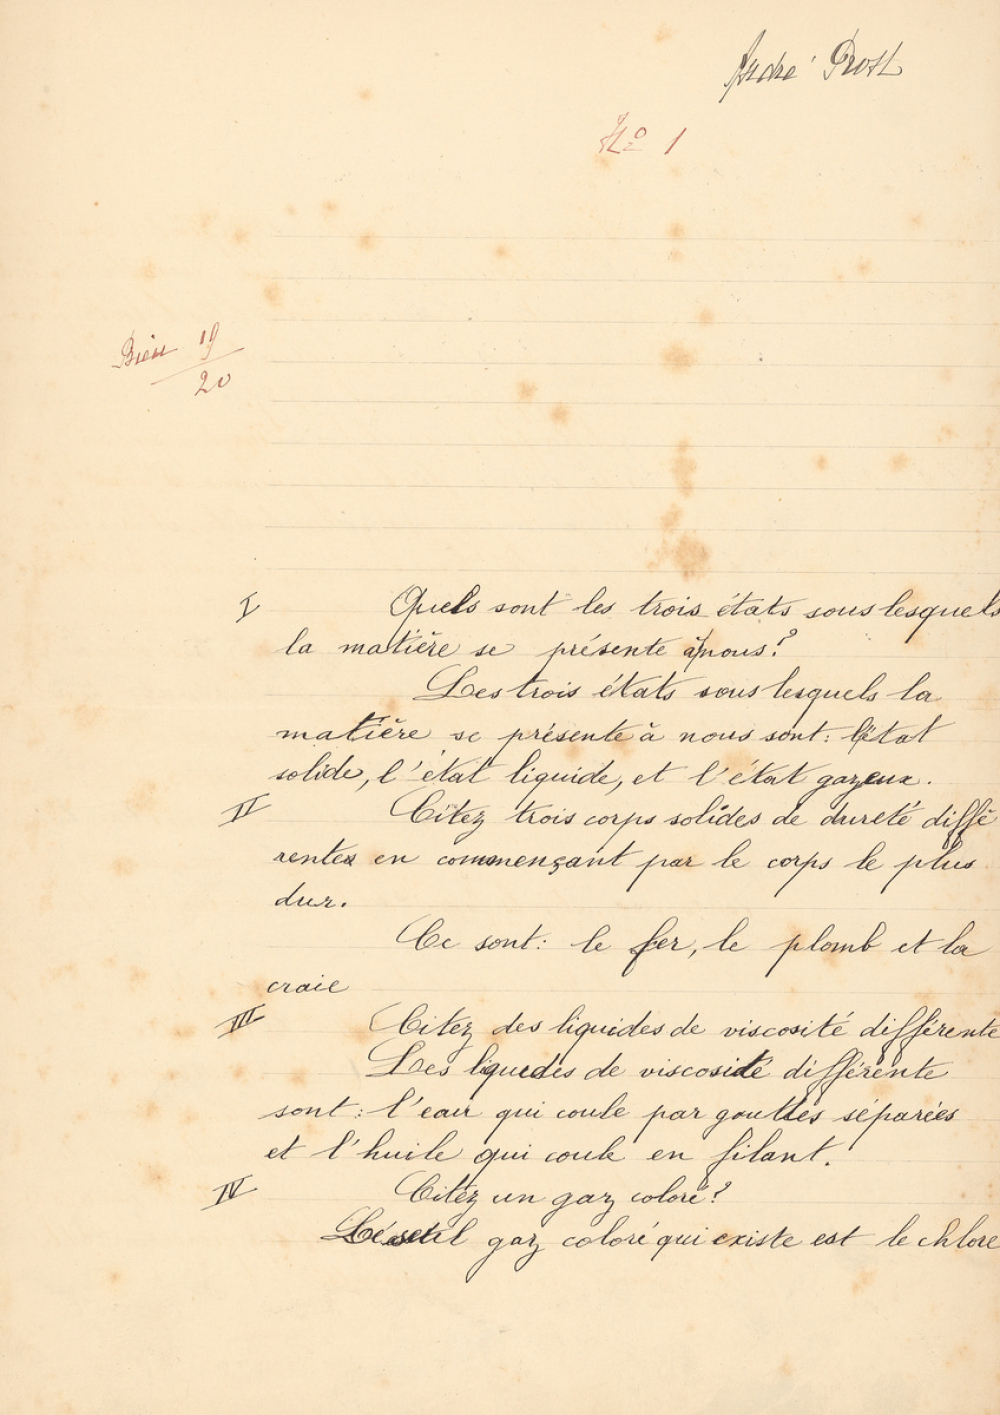 André Prost
No 1
Bien 19
20
I Quels sont les trois états sous lesquels
la matière se présente à nous?
Les trois états sous lesquels la
matière se présente à nous sont: l'état
solide, l'état liquide, et l'état gazeux.
II Citez trois corps solides de dureté diffé
rentes en commençant par le corps le plus
dur.
Ce sont: le fer, le plomb et la
craie
III Citez des liquides de viscosité différente
Les liquides de viscosité différente
sont: l'eau qui coule par gouttes séparées
et l'huile qui coule en filant.
IV Citez un gaz coloré?
Le seul gaz coloré qui existe est le chlore